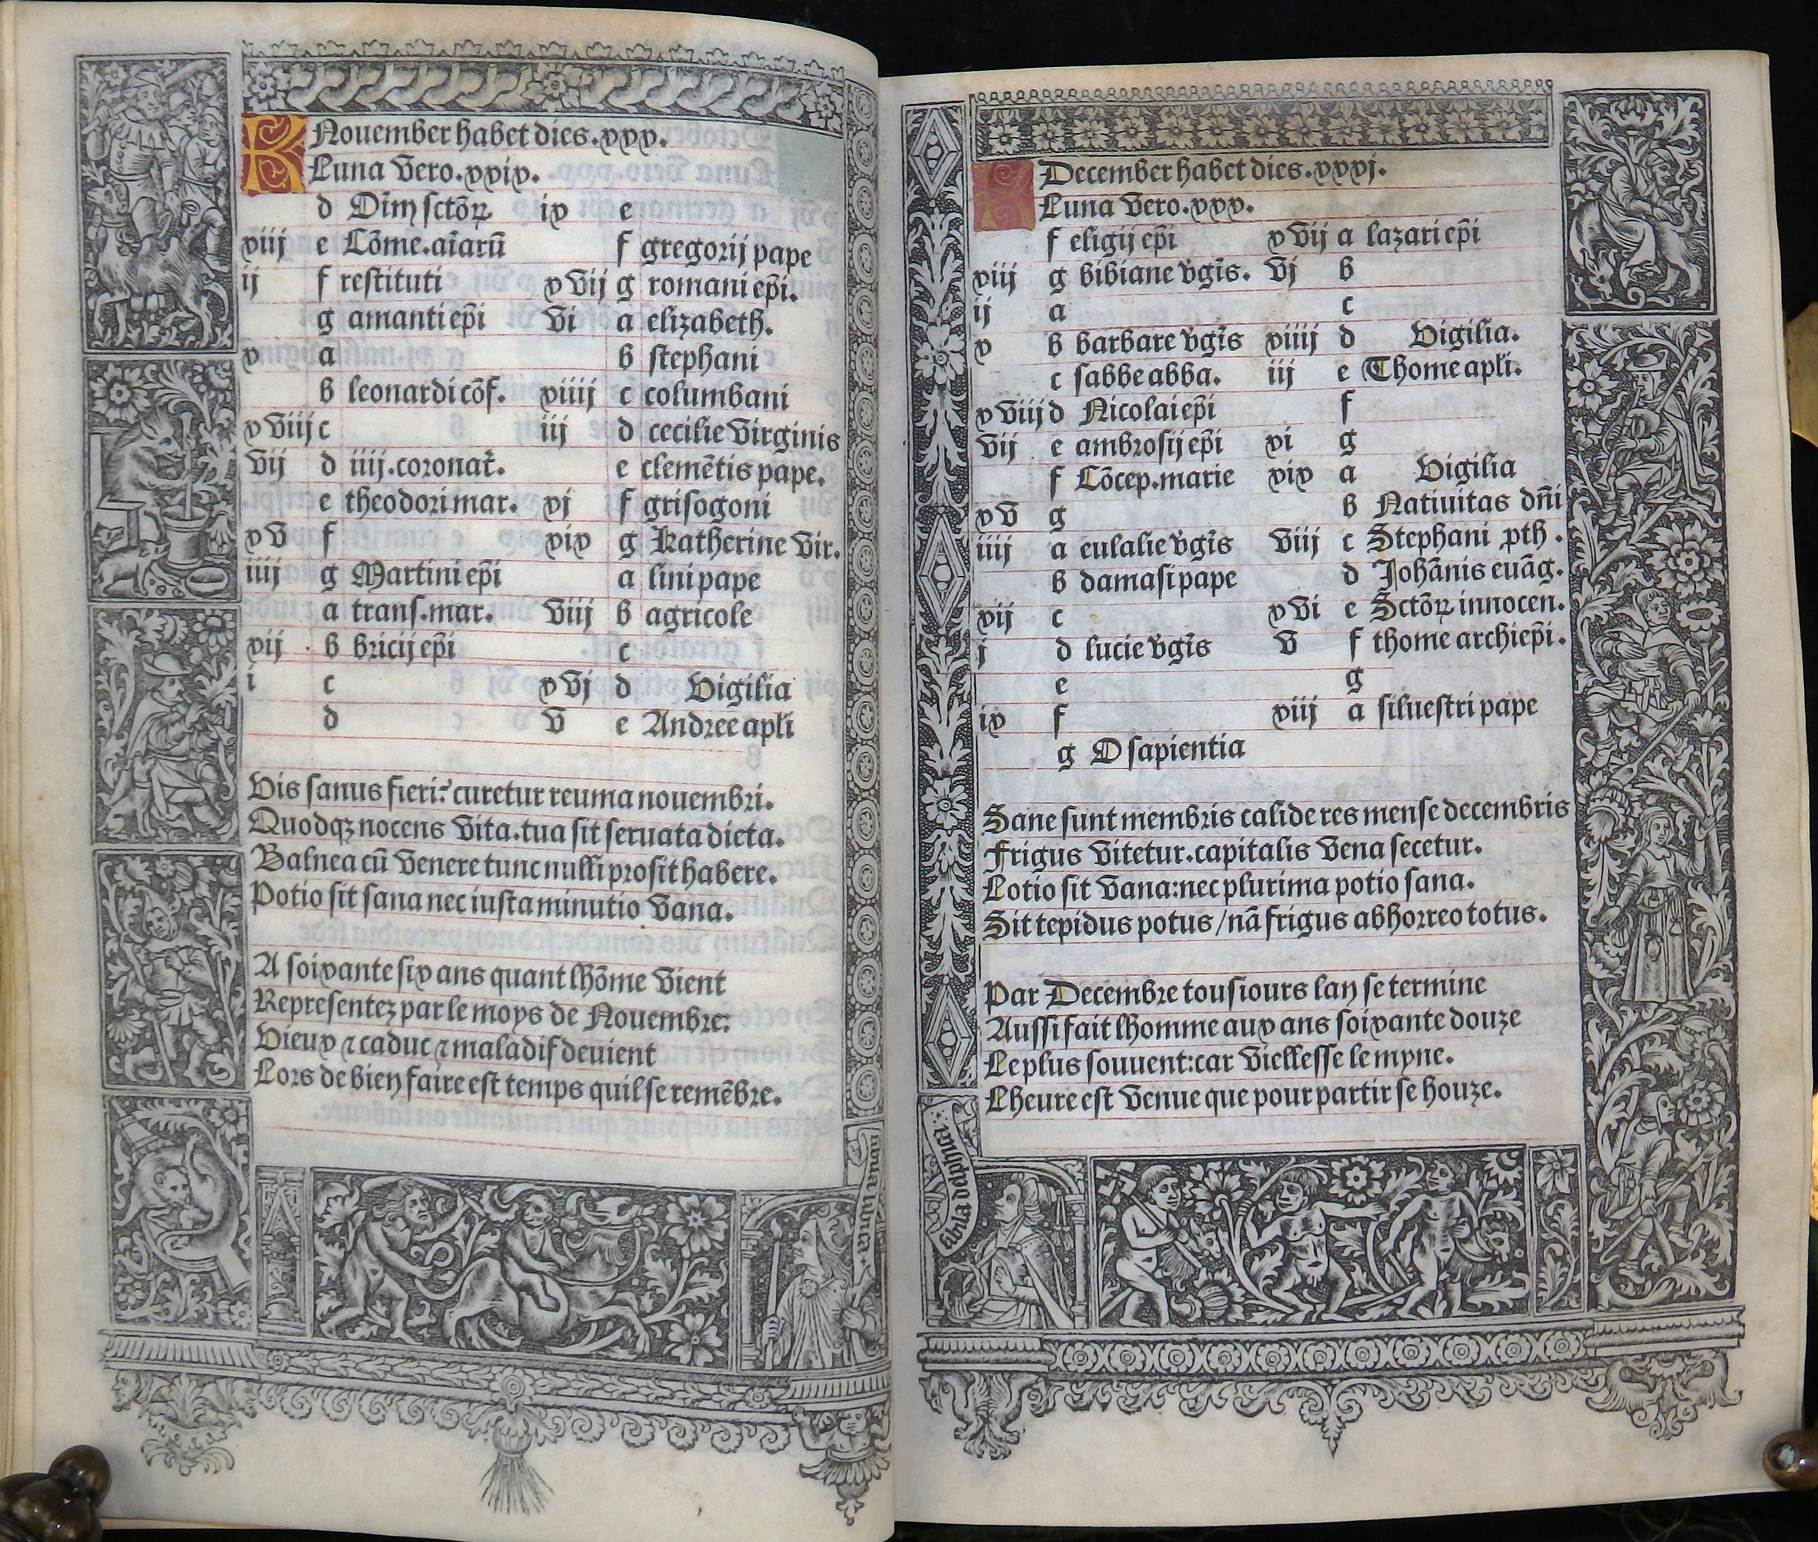 Nouember habet dies.xxx.
Luna vero.xxix.
d Oīm sctōꝝ ix e
xiij e Cōme.aīarū f gregorij pape
ij f restituti xvij g romani ep̄i.
g amanti ep̄i vi a elizabeth.
x a b stephani
b leonardi cōf. xiiij c columbani
xviij c iij d cecilie virginis
vij d iiij.coronat̄. e clemētis pape.
e theodori mar. xj f grisogoni
xv f xix g Katherine vir.
iiij g Martini ep̄i a lini pape
a trans.mar. viij b agricole
xij b bricij ep̄i c
i c xvj d Vigilia
d v e Andree apl̄i
Vis sanus fieri? curetur reuma nouembri.
Quodqꝫ nocens vita.tua sit seruata dieta.
Balnea cū venere tunc nulli prosit habere.
Potio sit sana nec iusta minutio vana.
A soixante six ans quant lhōme vient
Representez par le moys de Nouembre:
Vieux ⁊ caduc ⁊ maladif deuient
Lors de bien faire est temps quil se remēbre.
December habet dies.xxxj.
Luna vero.xxx.
f eligij ep̄i xvij a lazari ep̄i
xiij g bibiane vgīs. vj b
ij a c
x b barbare vgīs xiiij d Vigilia.
c sabbe abba. iij e Thome apl̄i.
xviij d Nicolai ep̄i f
vij e ambrosij ep̄i xi g
f Cōcep.marie xix a Vigilia
xv g b Natiuitas dn̄i
iiij a eulalie vgīs viij c Stephani ꝓth.
b damasi pape d Johānis euāg.
xij c xvi e Sctōꝝ innocen.
j d lucie vgīs v f thome archiep̄i.
e g
ix f xiij a siluestri pape
g O sapientia
Sane sunt membris calide res mense decembris
Frigus vitetur.capitalis vena secetur.
Lotio sit vana:nec plurima potio sana.
Sit tepidus potus/nā frigus abhorreo totus.
Par Decembre tousiours lan se termine
Aussi fait lhomme aux ans soixante douze
Le plus souuent:car viellesse le myne.
Lheure est venue que pour partir se houze.
sibila delphica.